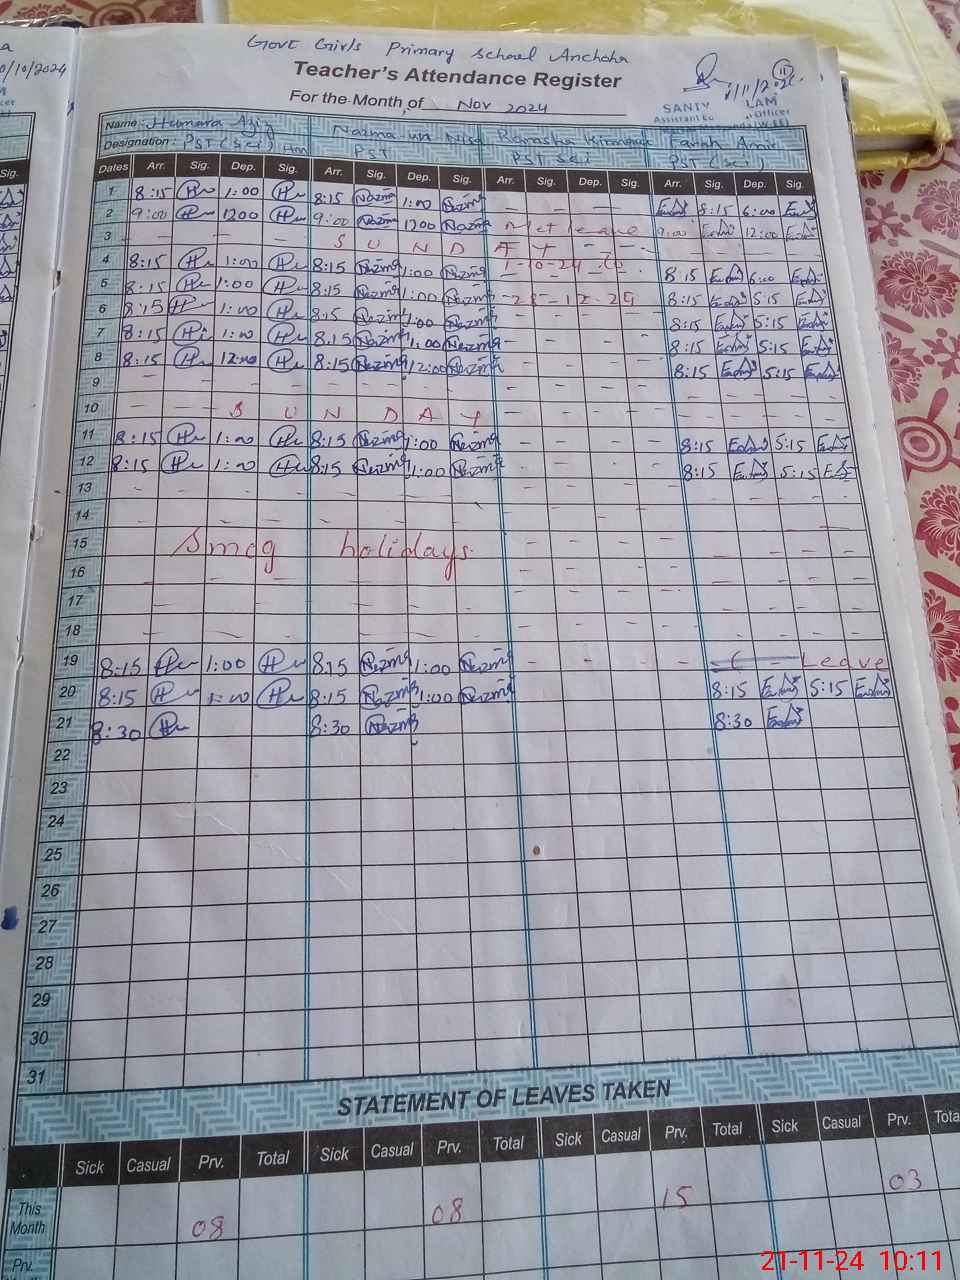 Govt Girls Primary School Anchoha
Teacher's Attendance Register
For the Month of Nov 2024
SANIY LAM
Assistant Ed Officer
10/10/2024
Name: Humara Aziz Nazma-un-Nisa Farah Amir
Designation: PST (Sci) PST PST Sci PST (Sci)
Dates Arr. Sig. Dep. Sig. Arr. Sig. Dep. Sig. Arr. Sig. Dep. Sig. Arr. Sig. Dep. Sig.
1 8:15 1:00 8:15 Nazma 1:00 Nazma - - - - 8:15 6:00
2 9:00 1200 9:00 Nazma 1200 Nazma Met leave 9:00 12:00
3 - - - S U N D A Y - -
4 8:15 1:00 8:15 Nazma 1:00 Nazma 1-10-24 8:15 6:00
5 8:15 1:00 8:15 Nazma 1:00 Nazma -28-12-24 8:15 5:15
6 8:15 1:00 8:15 Nazma 1:00 Nazma - - - - 8:15 5:15
7 8:15 1:00 8:15 Nazma 1:00 Nazma - - - - 8:15 5:15
8 8:15 12:00 8:15 Nazma 12:00 Nazma - - - - 8:15 5:15
9 - - - - - - - - - - - - - - - -
10 - - S U N D A Y - - - - - - - -
11 8:15 1:00 8:15 Nazma 1:00 Nazma - - - - 8:15 5:15
12 8:15 1:00 8:15 Nazma 1:00 Nazma - - - - 8:15 5:15
13 - - - - - - - - - - - - - - - -
14 - - - - - - - - - - - - - - - -
15 Smog holidays - - - - - - - -
16 - - - - - - - - - - - - - - - -
17 - - - - - - - - - - - - - - - -
18 - - - - - - - - - - - - - - - -
19 8:15 1:00 8:15 Nazma 1:00 Nazma - - - - Leave
20 8:15 1:00 8:15 Nazma 1:00 Nazma 8:15 5:15
21 8:30 8:30 Nazma 8:30
22
23
24
25
26
27
28
29
30
31
STATEMENT OF LEAVES TAKEN
Sick Casual Prv. Total Sick Casual Prv. Total Sick Casual Prv. Total Sick Casual Prv. Tota
This Month 08 08 15 03
Prv.
21-11-24 10:11